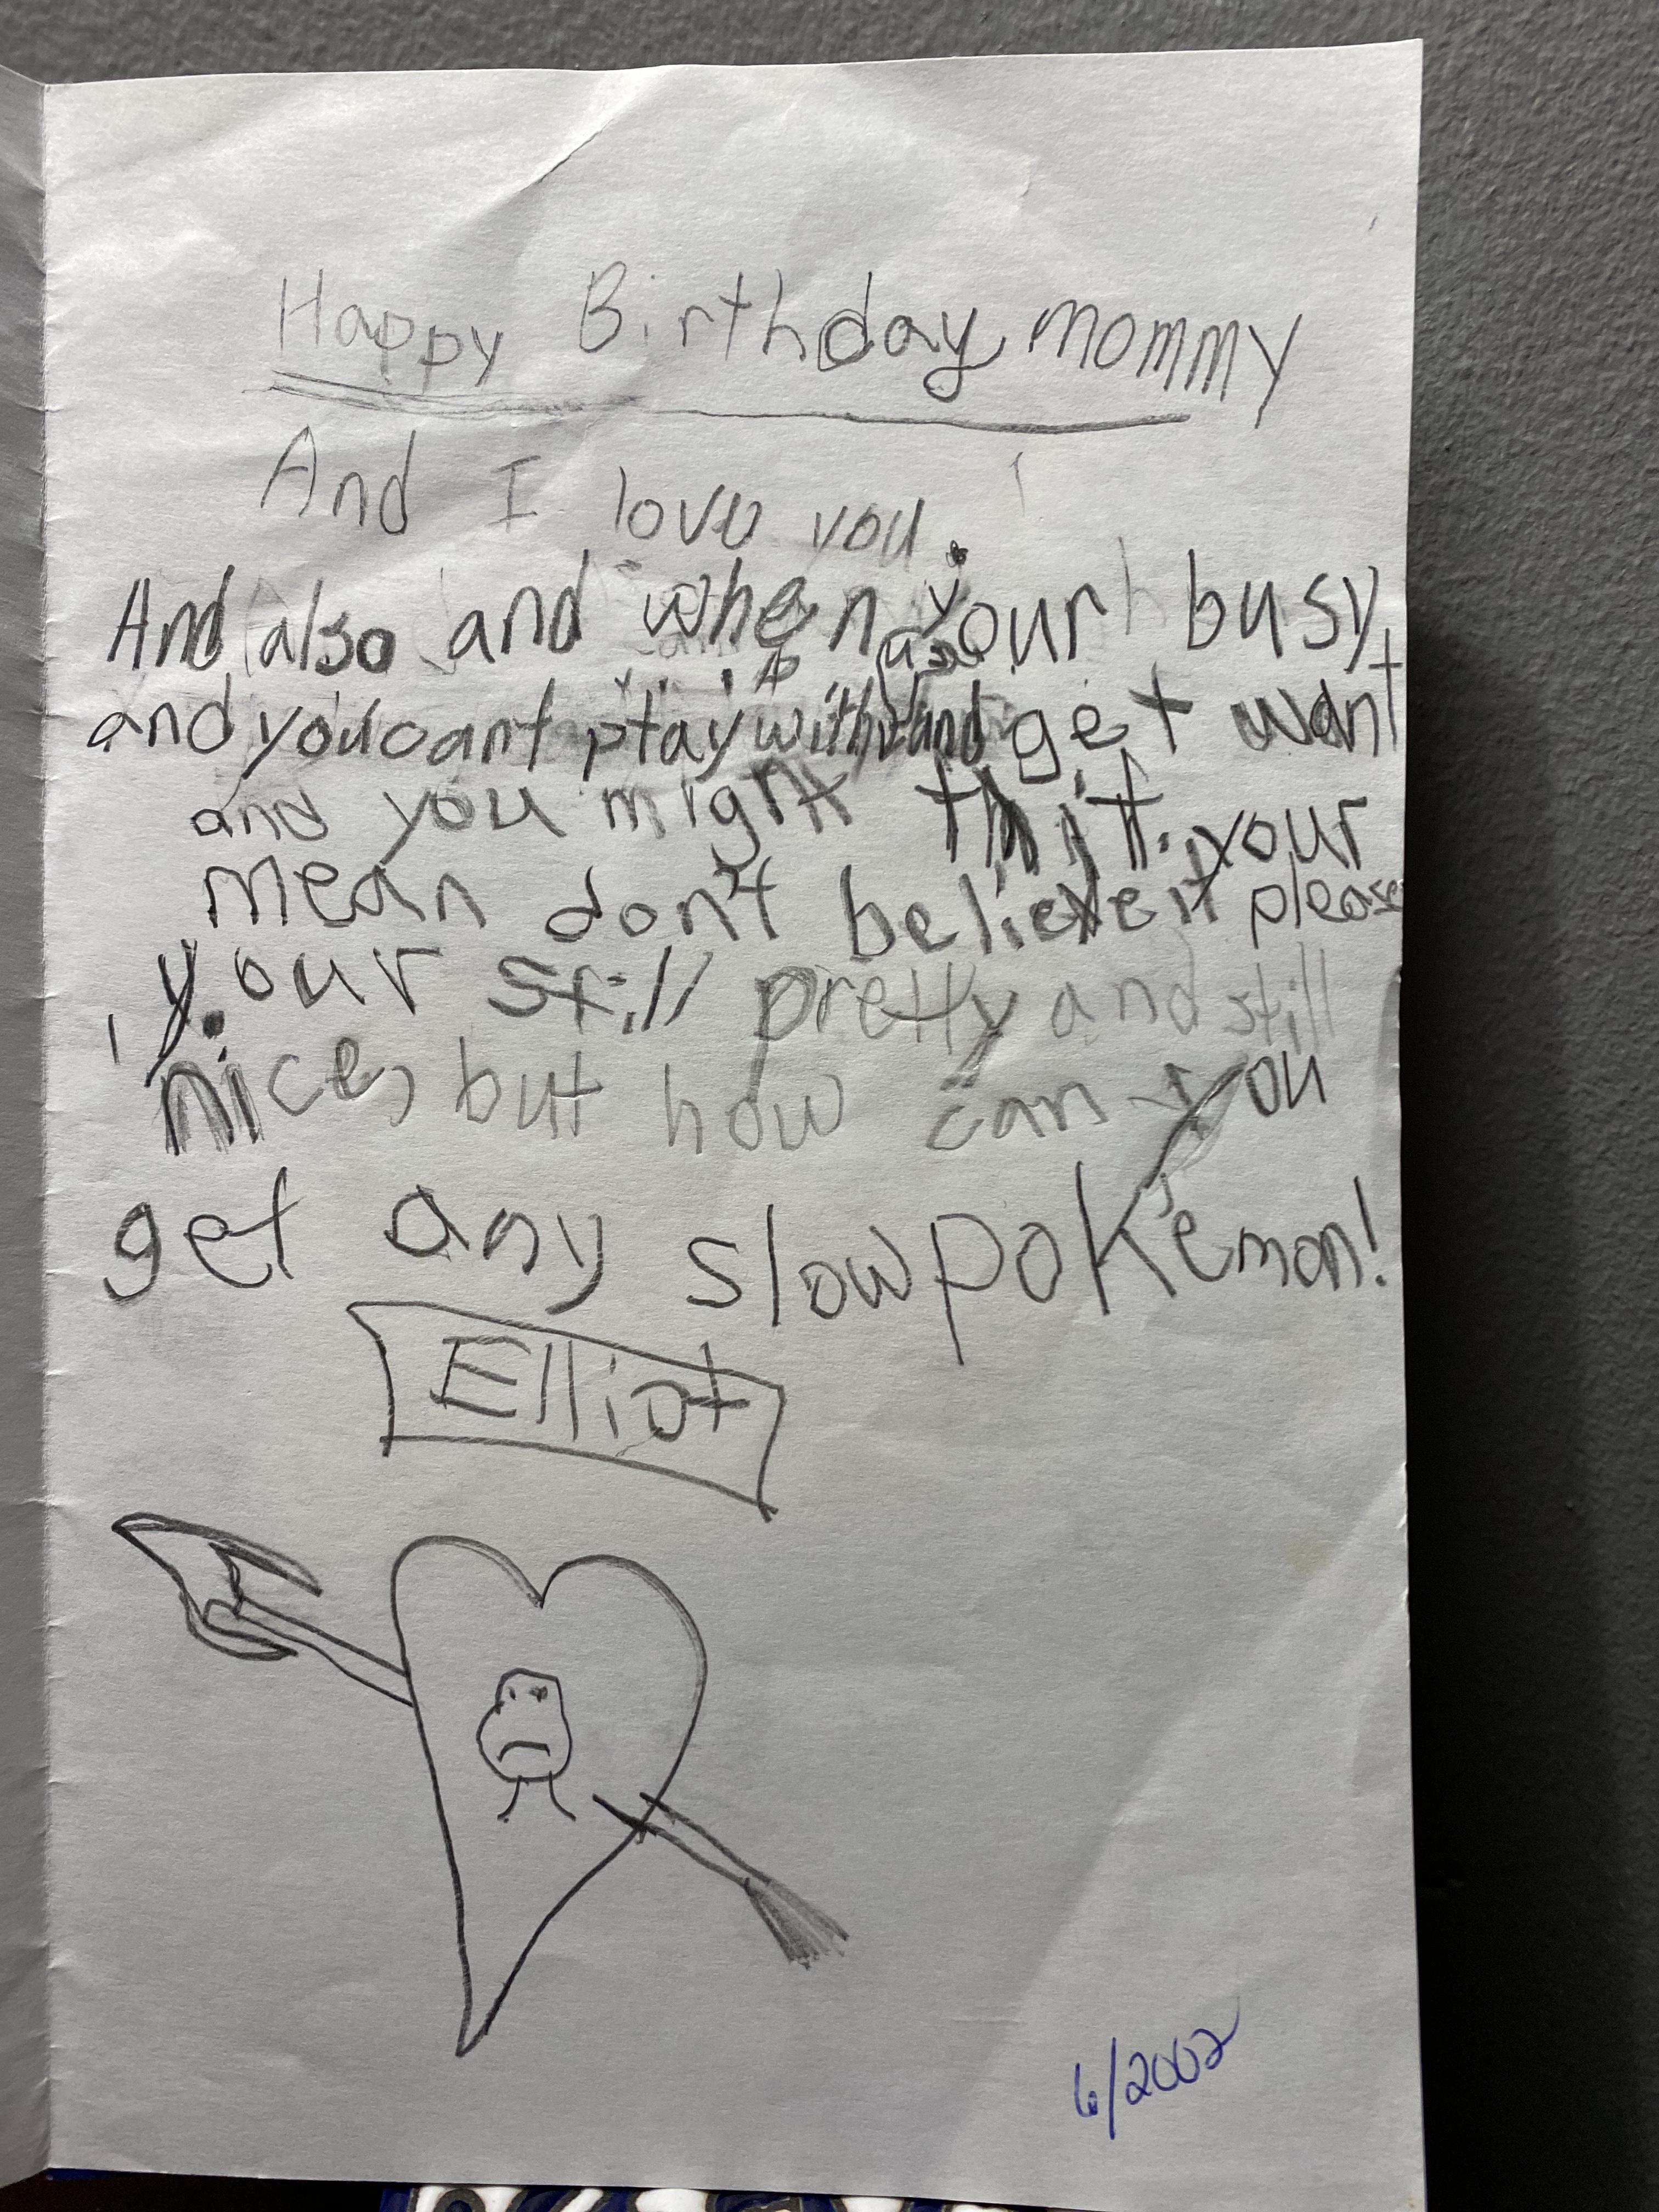 Happy Birthday mommy
And I love you.
And also and when your busy
and you cant play with and get want
and you might your
mean don't believe it please
your still pretty and still
nice, but how can you
get any slowpokemon!
Elliot
6/2002